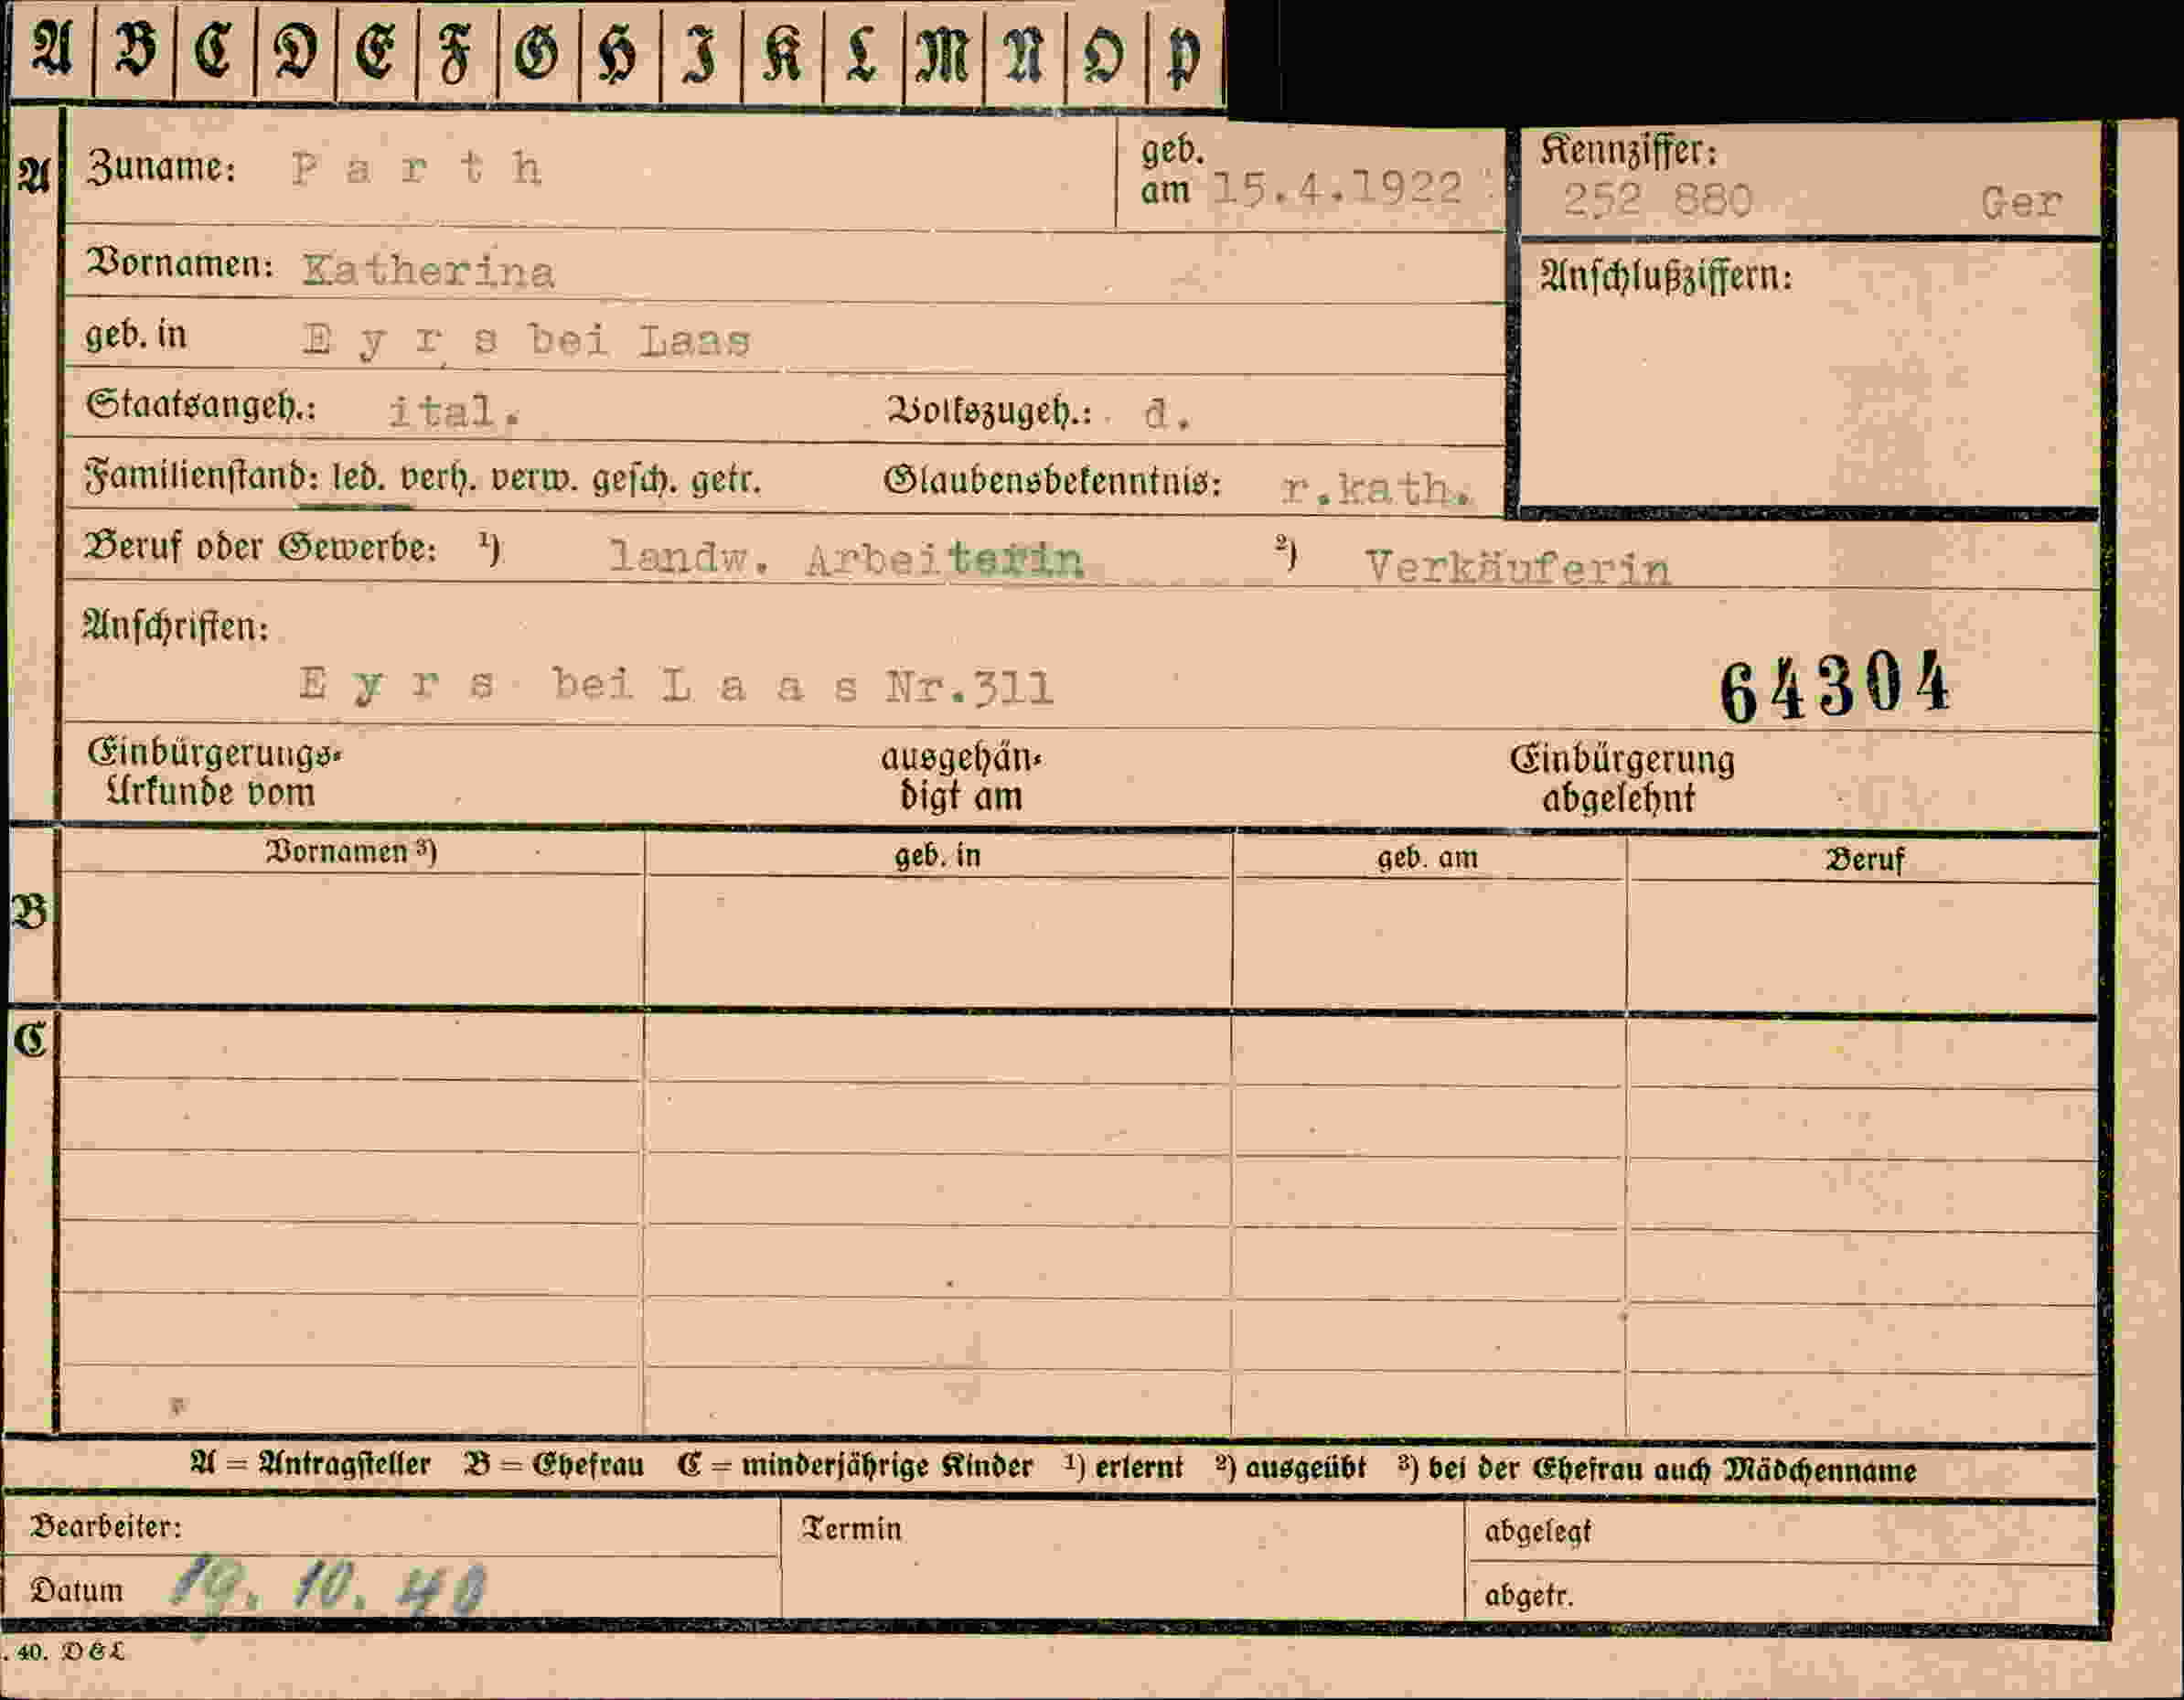 A B C D E F G H I K L M N O P
A Zuname: Parth geb. am 15.4.1922 Kennziffer: 252 880 Ger
Vornamen: Katherina Anschlußziffern:
geb. in Eyrs bei Laas
Staatsangeh.: ital. Volkszugeh.: d.
Familienstand: led. verh. verw. gesch. getr. Glaubensbekenntnis: r.kath.
Beruf oder Gewerbe: ¹) landw. Arbeiterin ²) Verkäuferin
Anschriften:
Eyrs bei Laas Nr.311 64304
Einbürgerungs- ausgehän- Einbürgerung
Urkunde vom digt am abgelehnt
Vornamen ³) geb. in geb. am Beruf
B
C
A = Antragsteller B = Ehefrau C = minderjährige Kinder ¹) erlernt ²) ausgeübt ³) bei der Ehefrau auch Mädchenname
Bearbeiter: Termin abgelegt
Datum 19. 10. 40 abgetr.
. 40. D & L